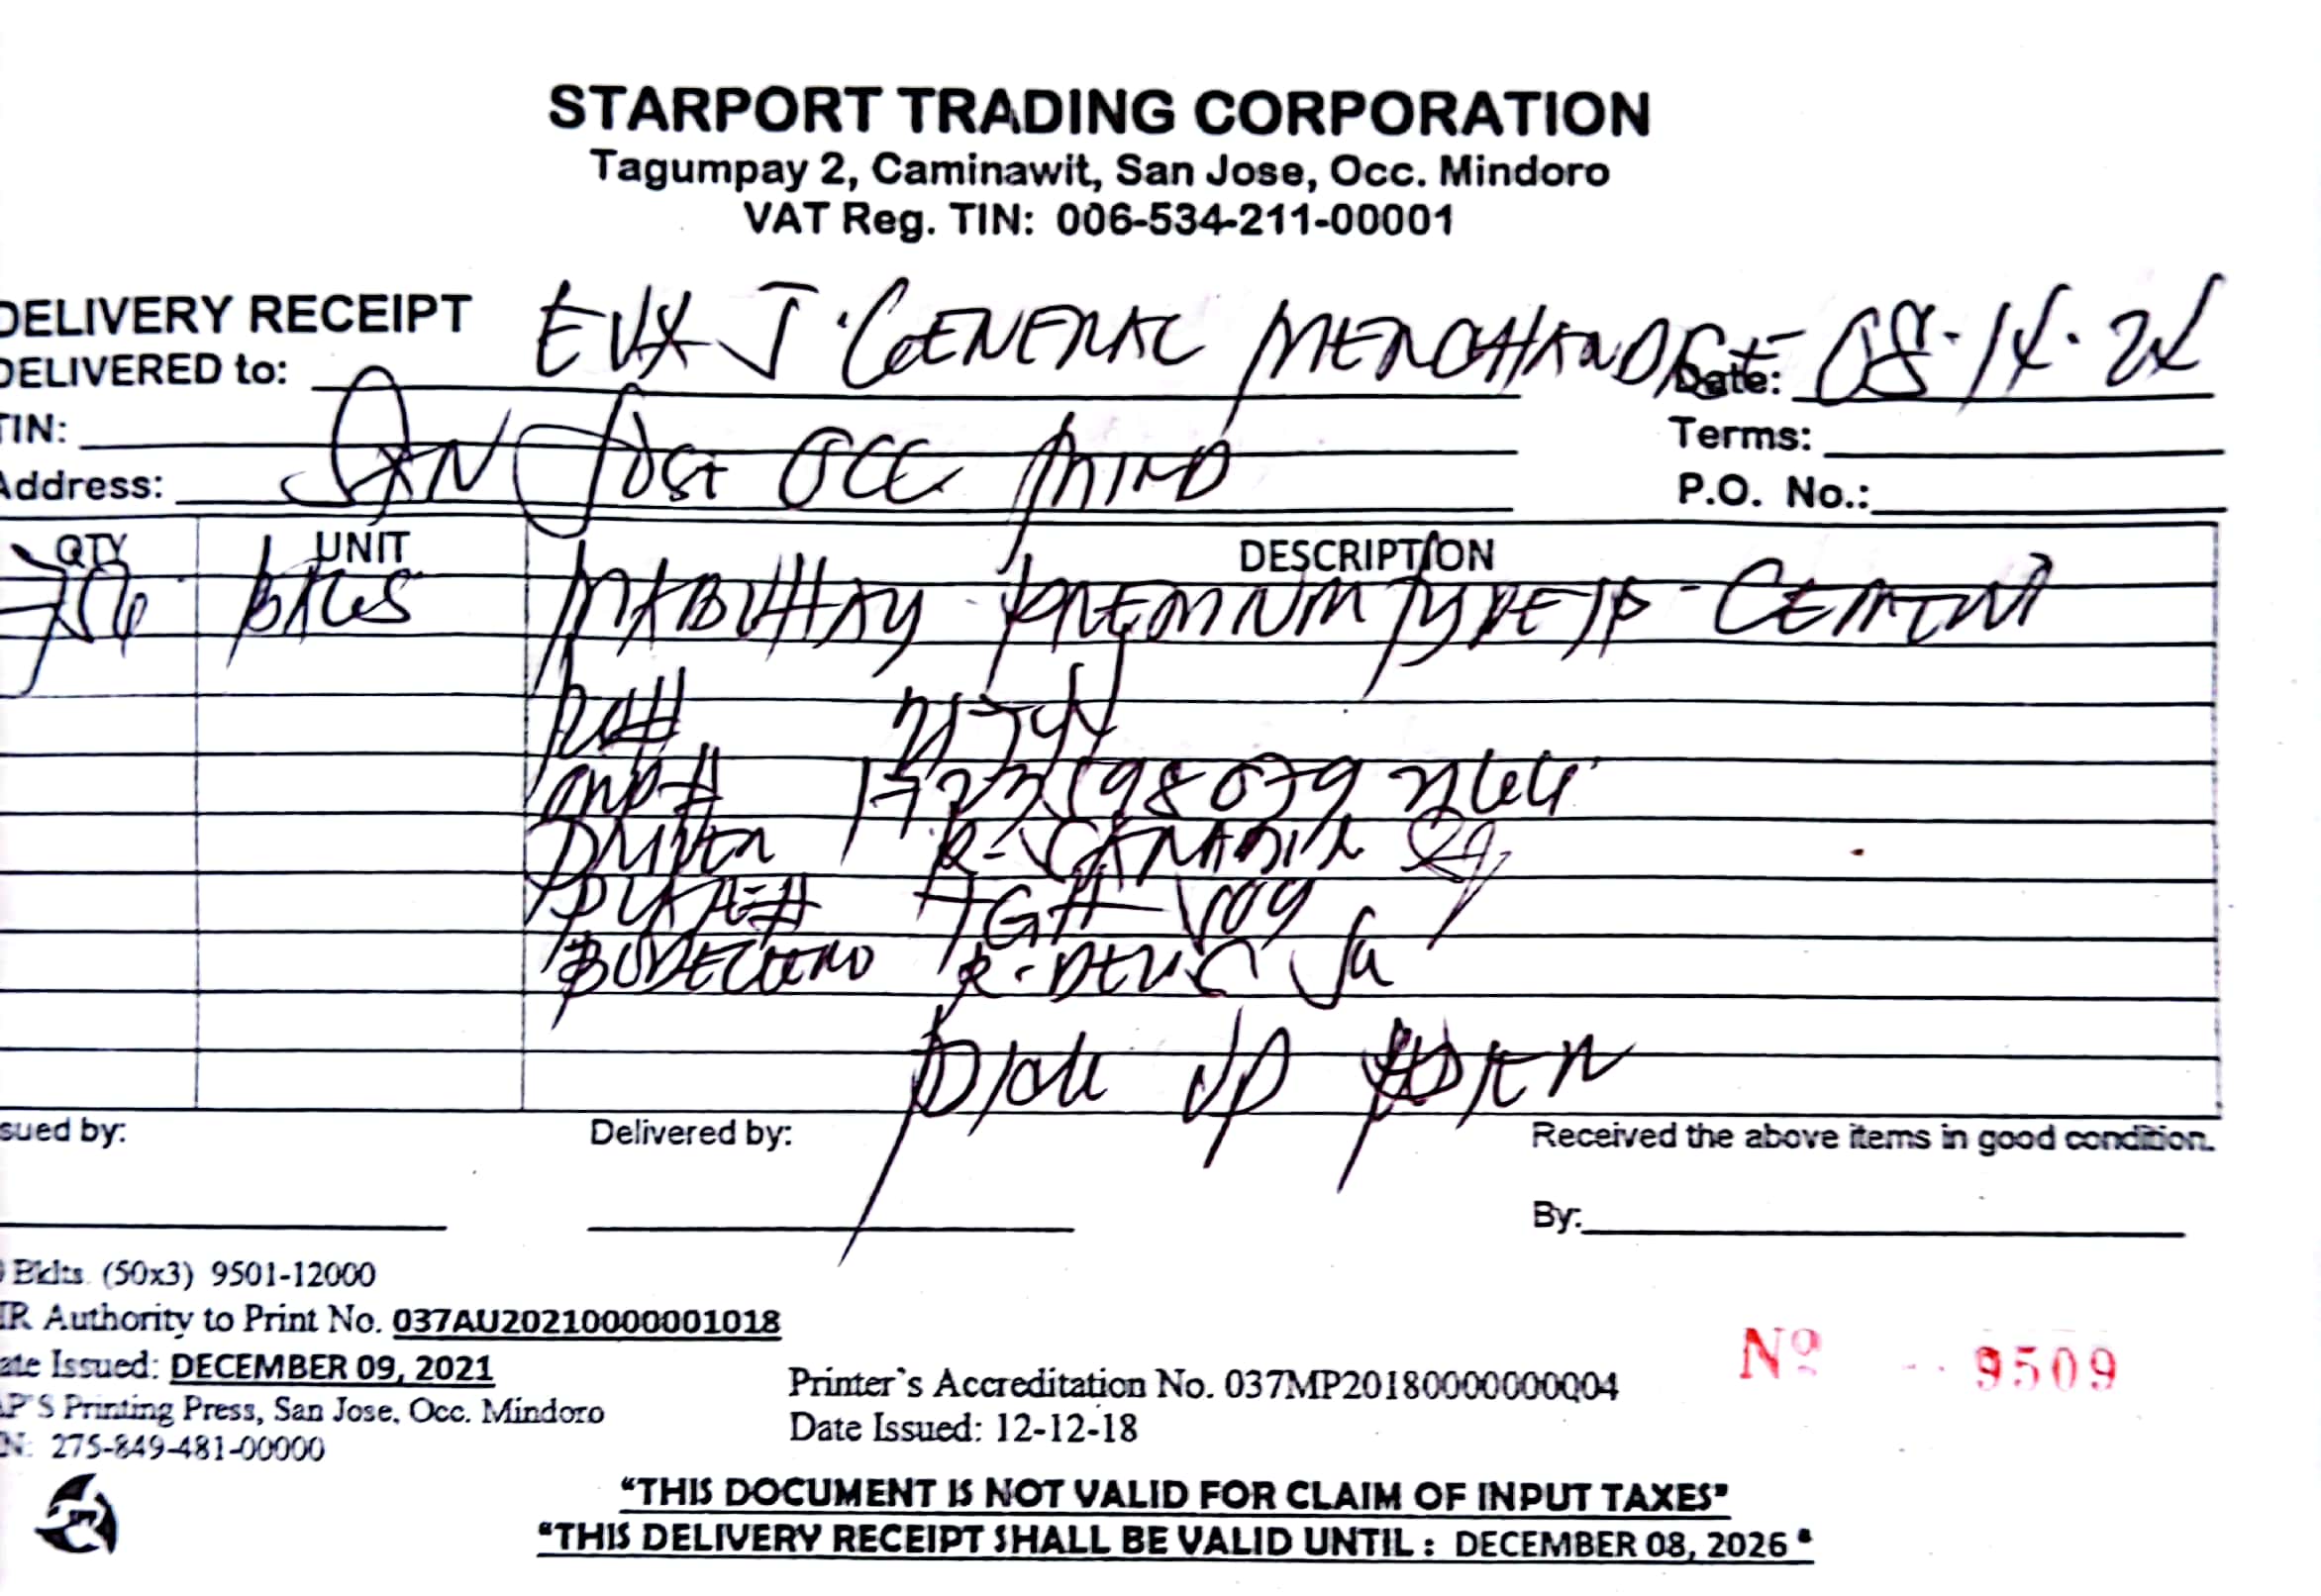 STARPORT TRADING CORPORATION
Tagumpay 2, Caminawit, San Jose, Occ. Mindoro
VAT Reg. TIN: 006-534-211-00001
DELIVERY RECEIPT
DELIVERED to: EVA J. GENERAL MERCHANDISE Date: 08-14-24
TIN: Terms:
Address: SAN JOSE OCC MIND P.O. No.:
QTY UNIT DESCRIPTION
BAGS MABUHAY PREMIUM TYPE 1P CEMENT
DRIVER
PLATE#
BODEGERO
PICK UP
sued by: Delivered by: Received the above items in good condition.
By:
Bklts. (50x3) 9501-12000
IR Authority to Print No. 037AU20210000001018
ate Issued: DECEMBER 09, 2021
P'S Printing Press, San Jose, Occ. Mindoro
N: 275-849-481-00000
Printer's Accreditation No. 037MP20180000000004
Date Issued: 12-12-18
Nº 9509
"THIS DOCUMENT IS NOT VALID FOR CLAIM OF INPUT TAXES"
"THIS DELIVERY RECEIPT SHALL BE VALID UNTIL : DECEMBER 08, 2026"